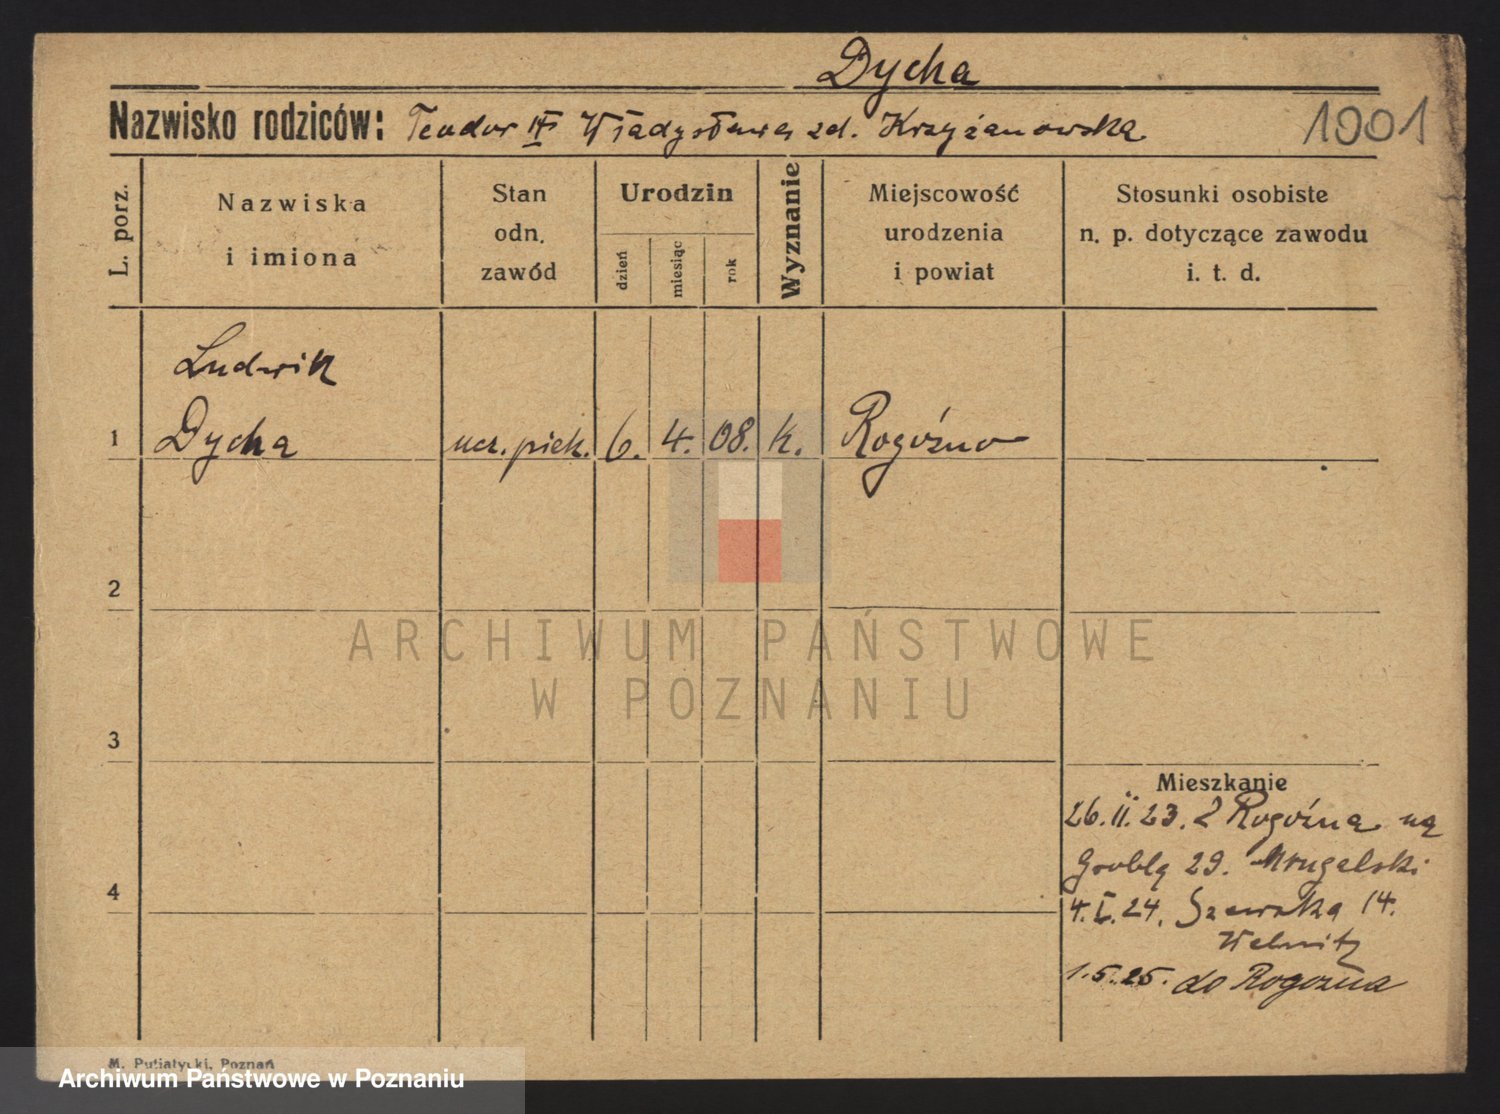 Dycha
Nazwisko rodziców: Teodor i Władysława zd. Krzyżanowska
1001
L. porz.
Nazwiska
i imiona
Stan
odn.
zawód
Urodzin
dzień
miesiąc
rok
Wyznanie
Miejscowość
urodzenia
i powiat
Stosunki osobiste
n. p. dotyczące zawodu
i. t. d.
Ludwik
1 Dycha ucz. piek. 6. 4. 08. k. Rogoźno
2
ARCHIWUM PAŃSTWOWE
W POZNANIU
3
Mieszkanie
26.II.23. z Rogoźna na
Groblą 29. Mrugalski
4
4.I.24. Szewska 14.
1.5.25. do Rogozna
M. Putiatycki, Poznań
Archiwum Państwowe w Poznaniu